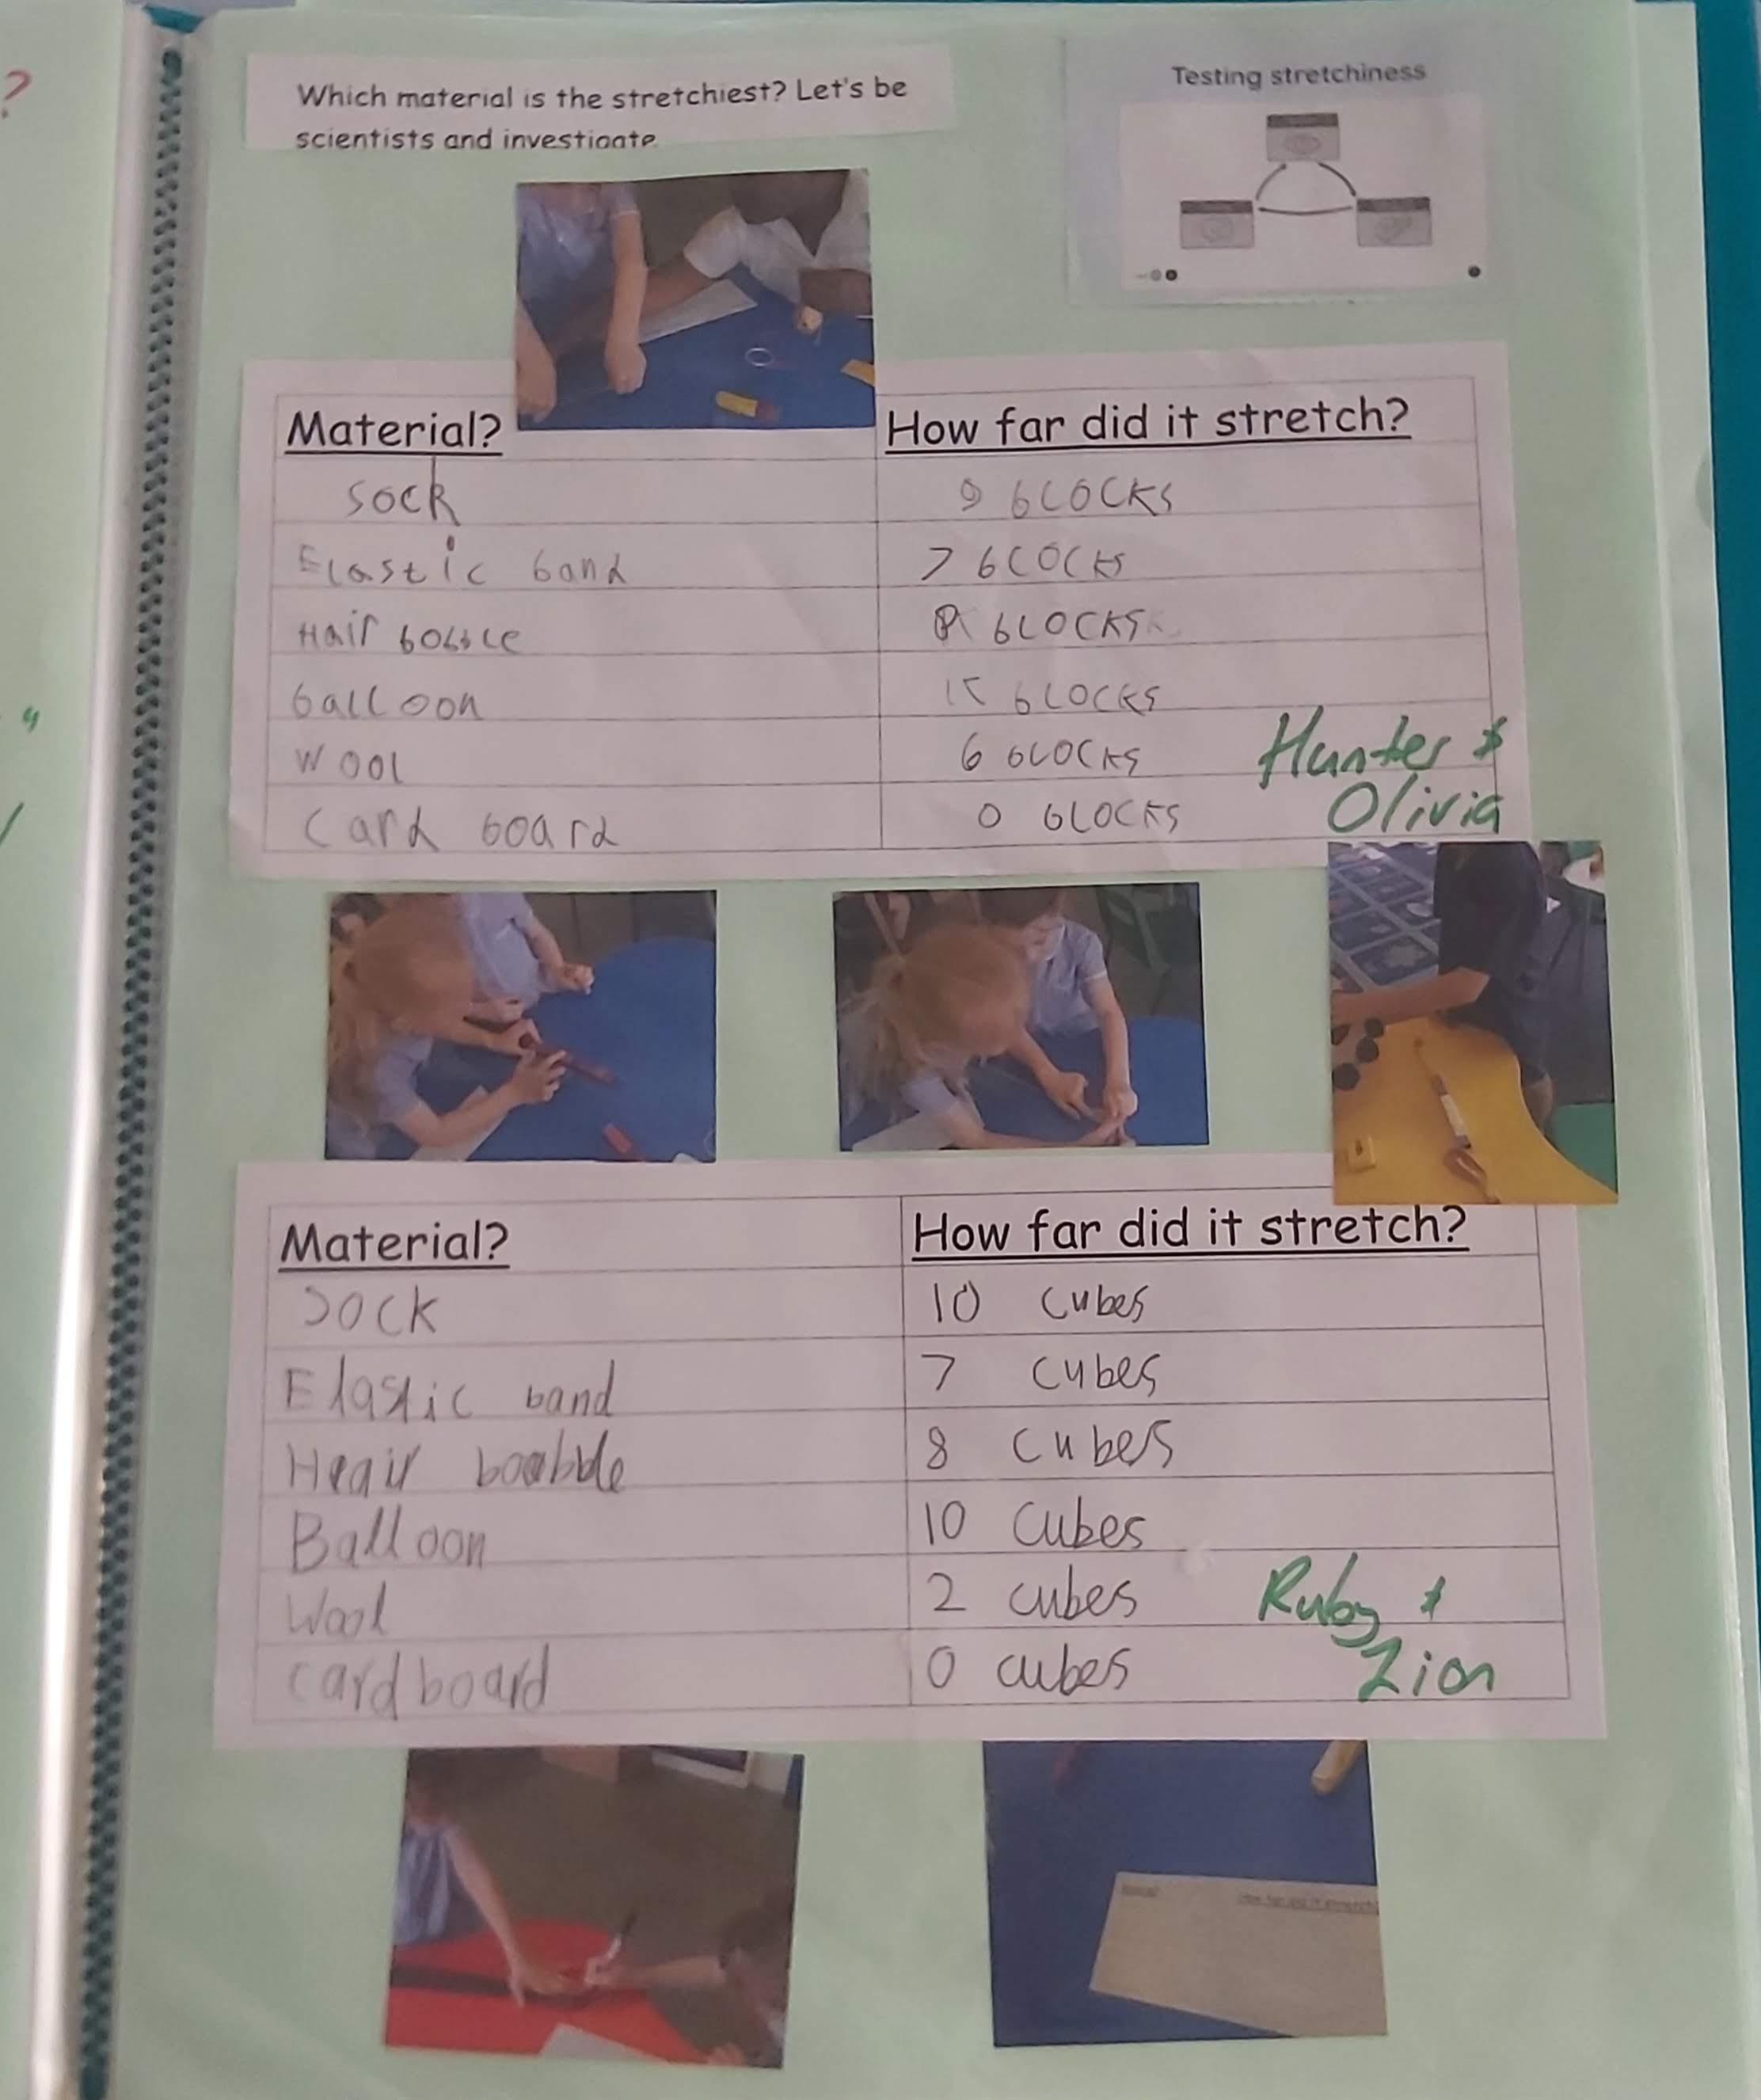 ?
Which material is the stretchiest? Let's be
scientists and investigate.
Testing stretchiness
Material? How far did it stretch?
Sock 9 blocks
Elastic band 7 blocks
Hair bobble 8 blocks
balloon 15 blocks
Wool 6 blocks
Card board 0 blocks
Hunter &
Olivia
Material? How far did it stretch?
Sock 10 cubes
Elastic band 7 cubes
Heair boobble 8 cubes
Balloon 10 cubes
Wool 2 cubes
cardboard 0 cubes
Ruby &
Zion
How far did it stretch?